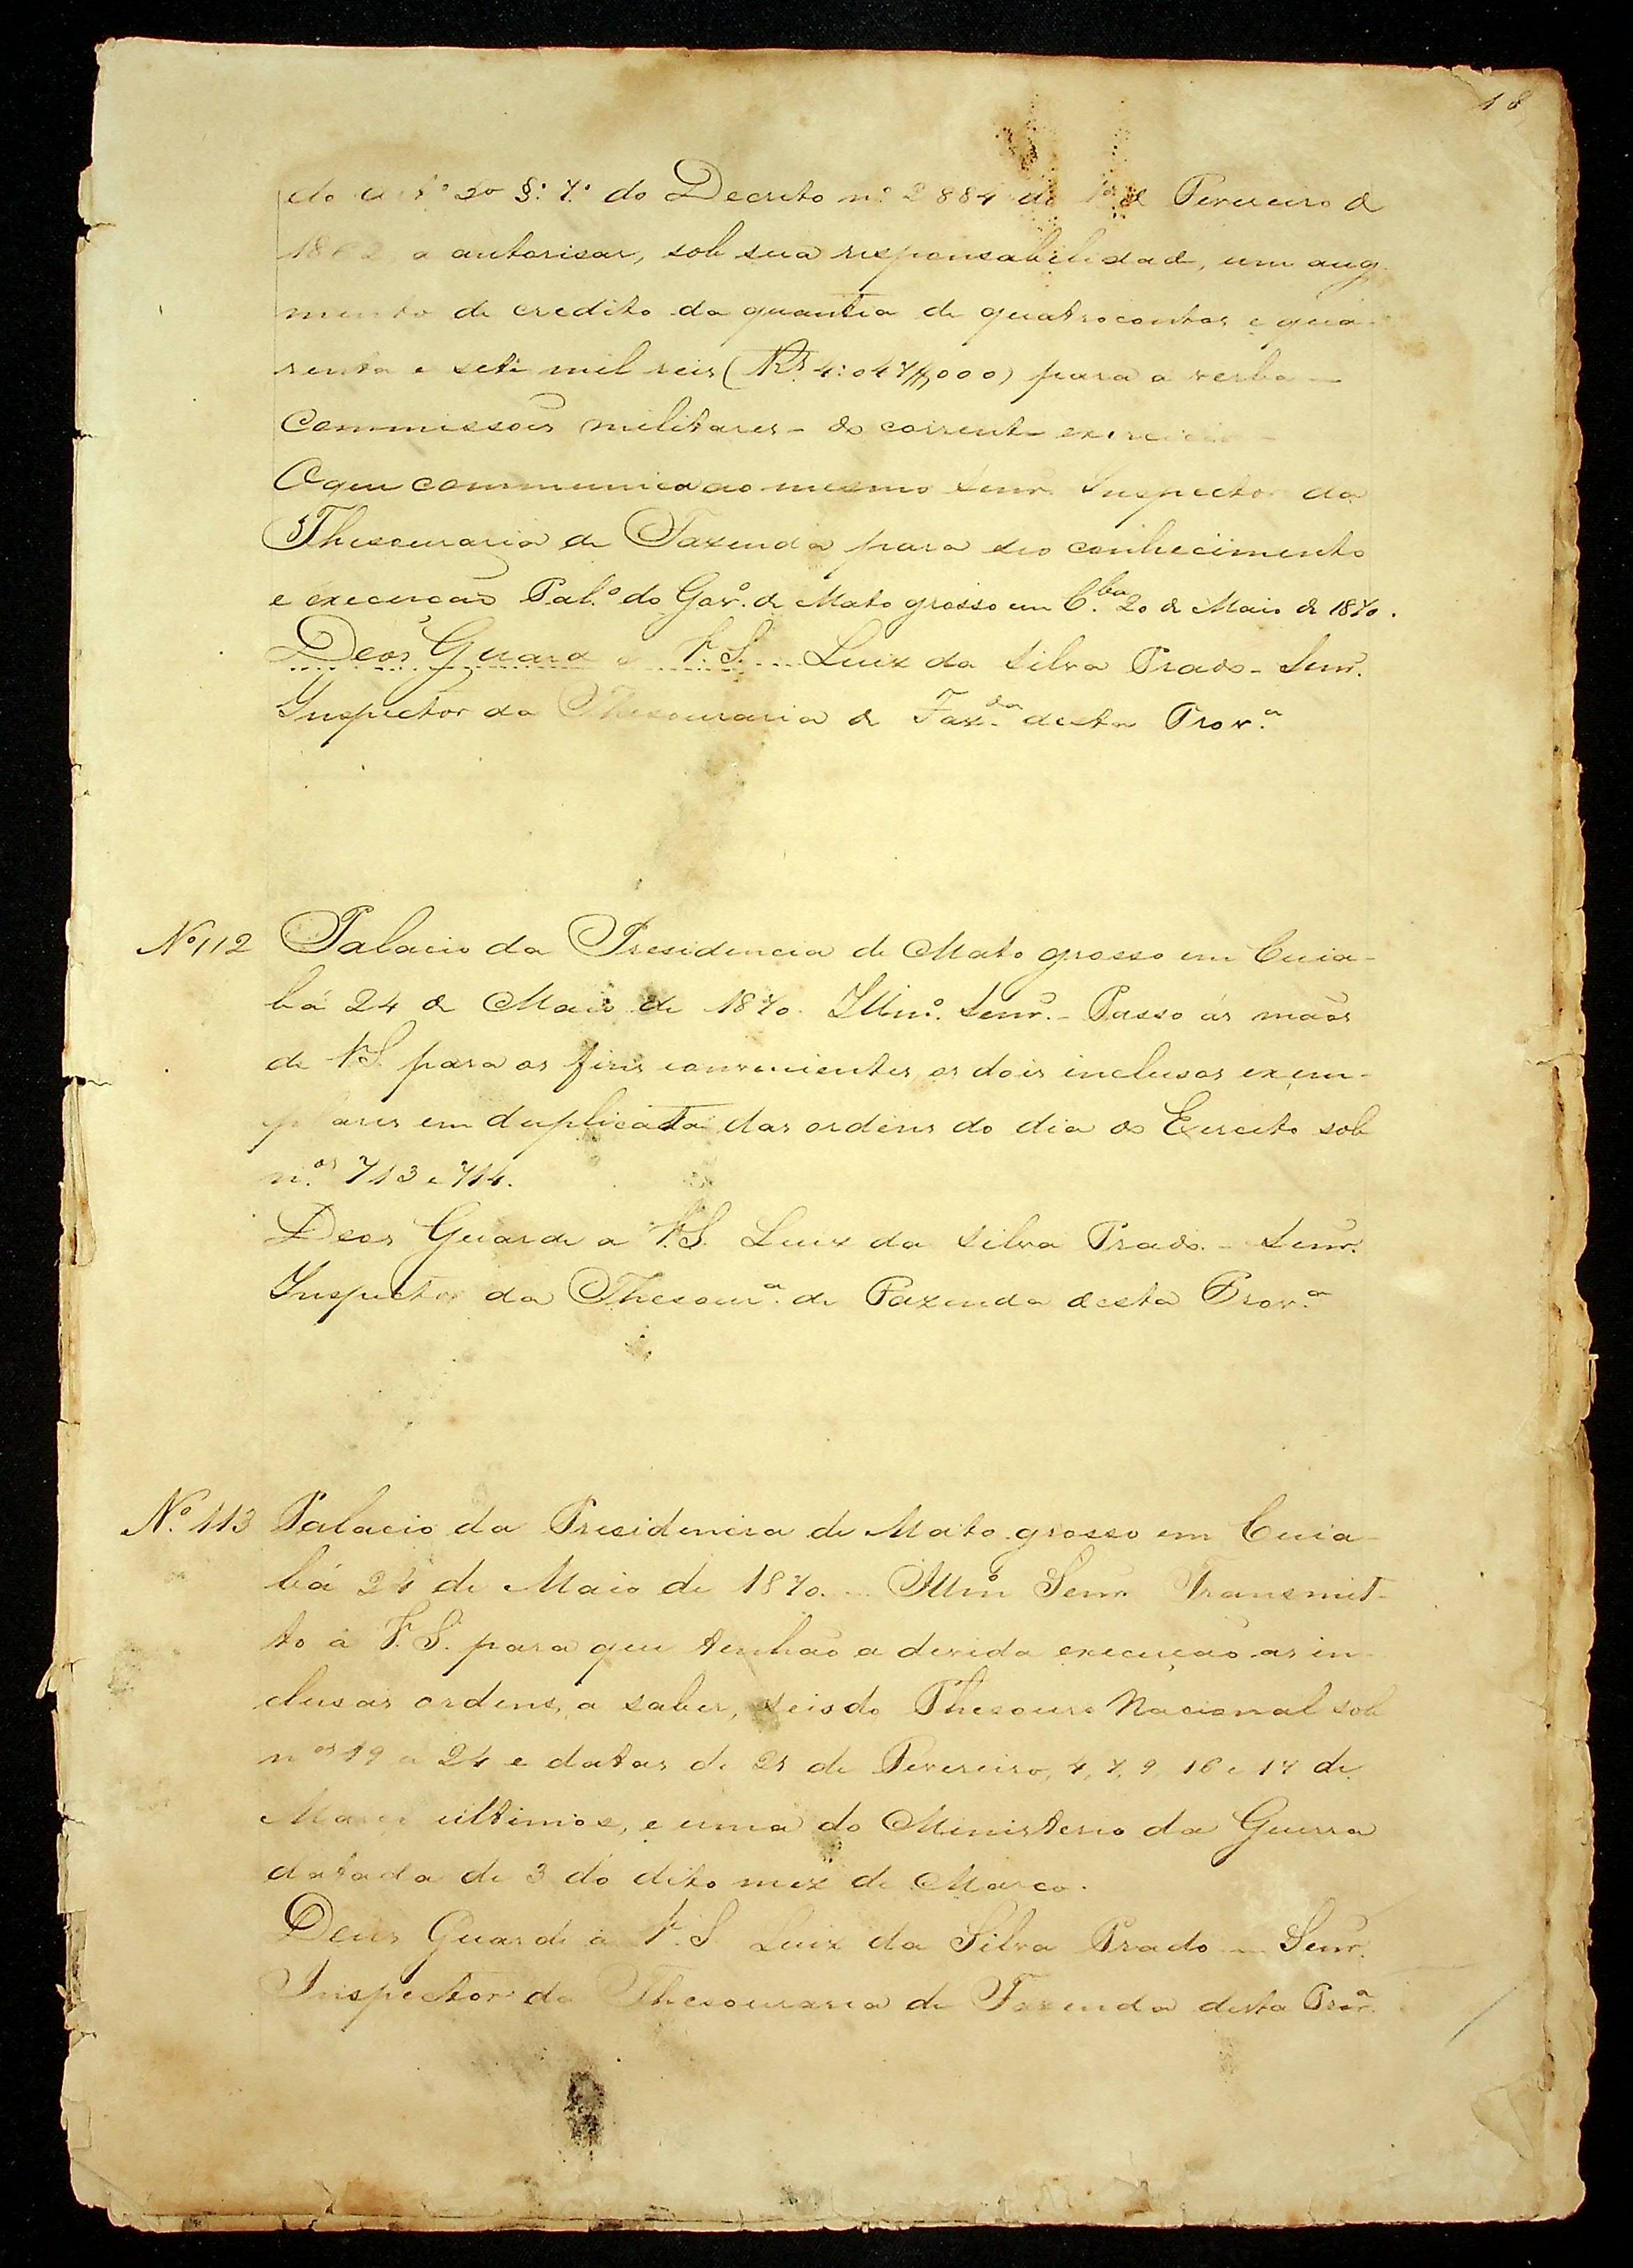 18
do art.º 2º §.º 7.º do Decreto n.º 2884 do 1º de Fevereiro de
1862, a autorisar, sob sua responsabilidade, um aug
mento de credito da quantia de quatro contos e qua-
renta e sete mil reis (Rs 4:047$000) para a verba -
Commissões militares - do corrente exercicio -
O que communica ao mesmo Senr. Inspector da
Thesouraria de Fazenda para seo conhecimento
e execução Pal.º do Gov.º de Mato grosso em C.bá 20 de Maio de 1870.
Deos Guarde a V.S. - Luiz da Silva Prado - Senr.
Inspector da Thesouraria de Faz.da desta Prov.ª
Nº 112 Palacio da Presidencia de Mato grosso em Cuia-
bá 24 de Maio de 1870. Illmº. Senr. - Passo ás mãos
de V.S. para os fins convenientes, os dois inclusos exem-
plares em duplicata das ordens do dia do Exercito sob
n.os 713 e 714.
Deos Guarde a V.S. Luiz da Silva Prado. - Senr.
Inspector da Thesour.ª de Fazenda desta Prov.ª
N.º 113 Palacio da Presidencia de Mato grosso em Cuia-
bá 24 de Maio de 1870. - Illmº Senr. Transmit-
to á V.S. para que tenhão a devida execução as in-
clusas ordens, a saber, seis do Thesouro Nacional sob
nos 19 a 24 e datas de 25 de Fevereiro, 4, 7, 9, 16 e 17 de
Março ultimos, e uma do Ministerio da Guerra
datada de 3 do dito mez de Março.
Deus Guarde a V.S. Luiz da Silva Prado - Senr.
Inspector da Thesouraria de Fazenda desta Prov.ª